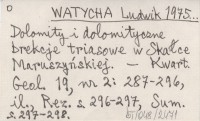 O
WATYCHA Ludwik 1975...
Dolomity i dolomityczne
brekcje triasowe w Skałce
Maruszyńskiej. – Kwart.
Geol. 19, nr 2: 287-296,
il., Rez. s. 296-297, Sum.
s. 297-298.